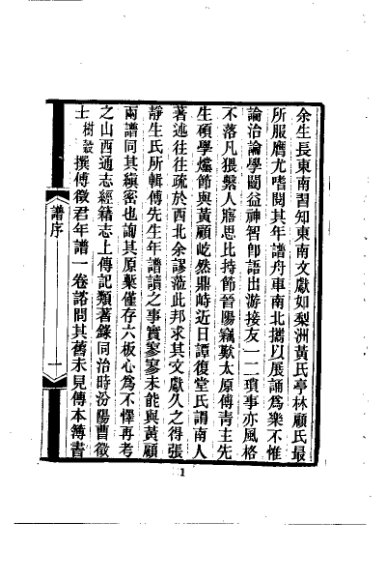 余生長東南習知東南文獻如梨洲黃氏亭林顧氏最
所服膺尤嗜閱其年譜舟車南北攜以展誦爲樂不惟
論治論學闓益神智卽語出游接友一二瑣事亦風格
不落凡猥繫人寤思比持節晉陽竊歎太原傅青主先
生碩學爆節與黃顧屹然鼎峙近日譚復堂氏謂南人
著述往往疏於西北余謬蒞此邦求其文獻久之得張
靜生氏所輯傅先生年譜讀之事實寥寥未能與黃顧
兩譜同其縝密也詢其原槀僅存六板心爲不懌再考
之山西通志經籍志上傳記類著錄同治時汾陽曹徵
士樹榖撰傅徵君年譜一卷諮問其舊未見傳本簿書
譜序
一
1